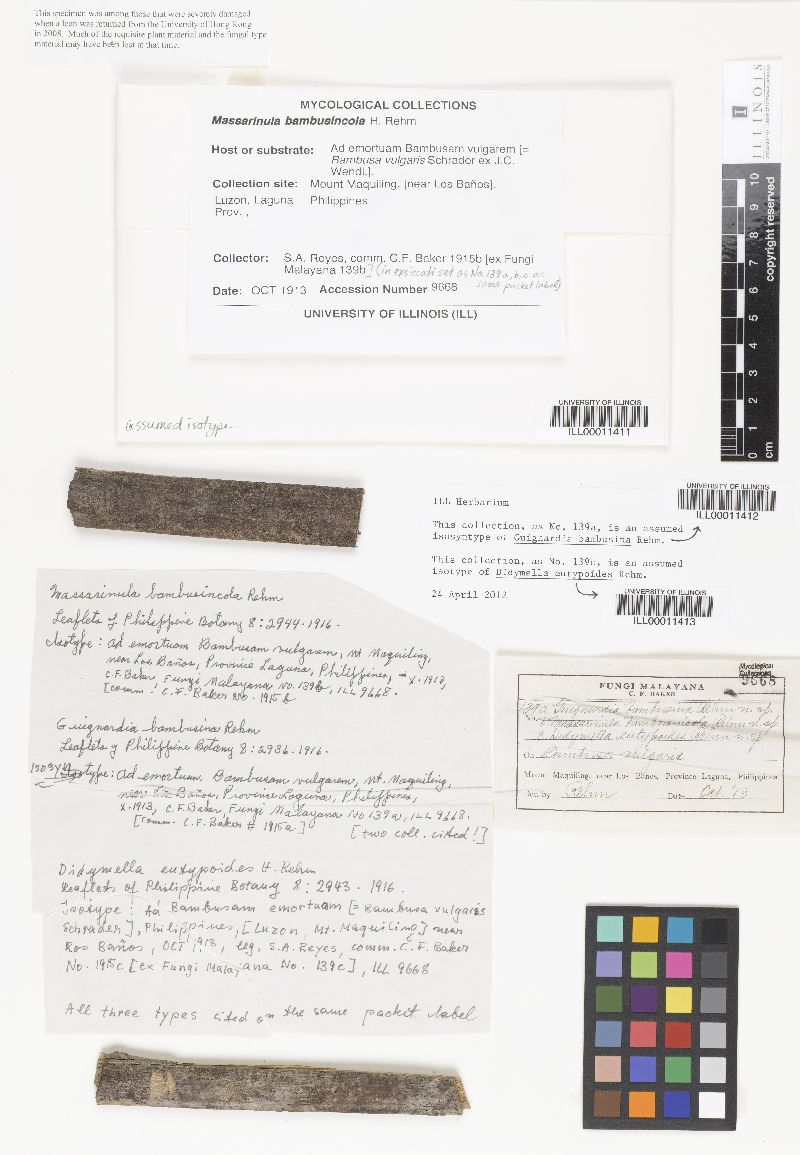 This specimen was among those that were severely damaged
when a loan was returned from the University of Hong Kong
in 2008. Much of the requisite plant material and the fungal type
material may have been lost at that time.
MYCOLOGICAL COLLECTIONS
Massarinula bambusincola H. Rehm
Host or substrate: Ad emortuam Bambusam vulgarem [=
Bambusa vulgaris Schrader ex J.C.
Wendl.].
Collection site: Mount Maquiling, [near Los Baños].
Luzon, Laguna Philippines
Prov. ,
Collector: S.A. Reyes, comm. C.F. Baker 1915b [ex Fungi
Malayana 139b] (in exsiccati set as No. 139a, b, c on
same packet label)
Date: OCT 1913 Accession Number 9668
UNIVERSITY OF ILLINOIS (ILL)
assumed isotype
UNIVERSITY OF ILLINOIS
ILL00011411
ILLINOIS
copyright reserved
0 1 2 3 4 5 6 7 8 9 10
cm
UNIVERSITY OF ILLINOIS
ILL00011412
ILL Herbarium
This collection, as No. 139a, is an assumed
isosyntype of Guignardia bambusina Rehm.
This collection, as No. 139c, is an assumed
isotype of Didymella eutypoides Rehm.
24 April 2012
UNIVERSITY OF ILLINOIS
ILL00011413
Massarinula bambusincola Rehm
Leaflets of Philippine Botany 8:2944-1916.
Isotype: ad emortuam Bambusam vulgarem, Mt Maquiling,
near Los Baños, Province Laguna, Philippines, - X.1913,
C.F. Baker, Fungi Malayana No. 139b, ILL 9668.
[comm. C.F. Baker No. 1915b
Guignardia bambusina Rehm
Leaflets of Philippine Botany 8:2936-1916.
isosyntype: ad emortuam Bambusam vulgarem, Mt. Maquiling,
near Los Baños, Province Laguna, Philippines,
X.1913, C.F. Baker, Fungi Malayana No 139a, ILL 9668.
[comm. C.F. Baker # 1915a] [two coll. cited!]
Didymella eutypoides H. Rehm
Leaflets of Philippine Botany 8: 2943. 1916.
Isotype: Ad Bambusam emortuam [= Bambusa vulgaris
Schrader], Philippines, [Luzon, Mt. Maquiling] near
Los Baños, OCT 1913, leg. S.A. Reyes, comm. C.F. Baker
No. 1915c [ex Fungi Malayana No. 139c], ILL 9668
All three types cited on the same packet label
Mycological
Collections
9668
FUNGI MALAYANA
C. F. BAKER
139a Guignardia bambusina Rehm n. sp.
b Massarinula bambusincola Rehm n. sp.
c Didymella eutypoides Rehm n. sp.
On Bambusa vulgaris
Mount Maquiling, near Los Baños, Province Laguna, Philippines
Det. by Rehm Date Oct. '13